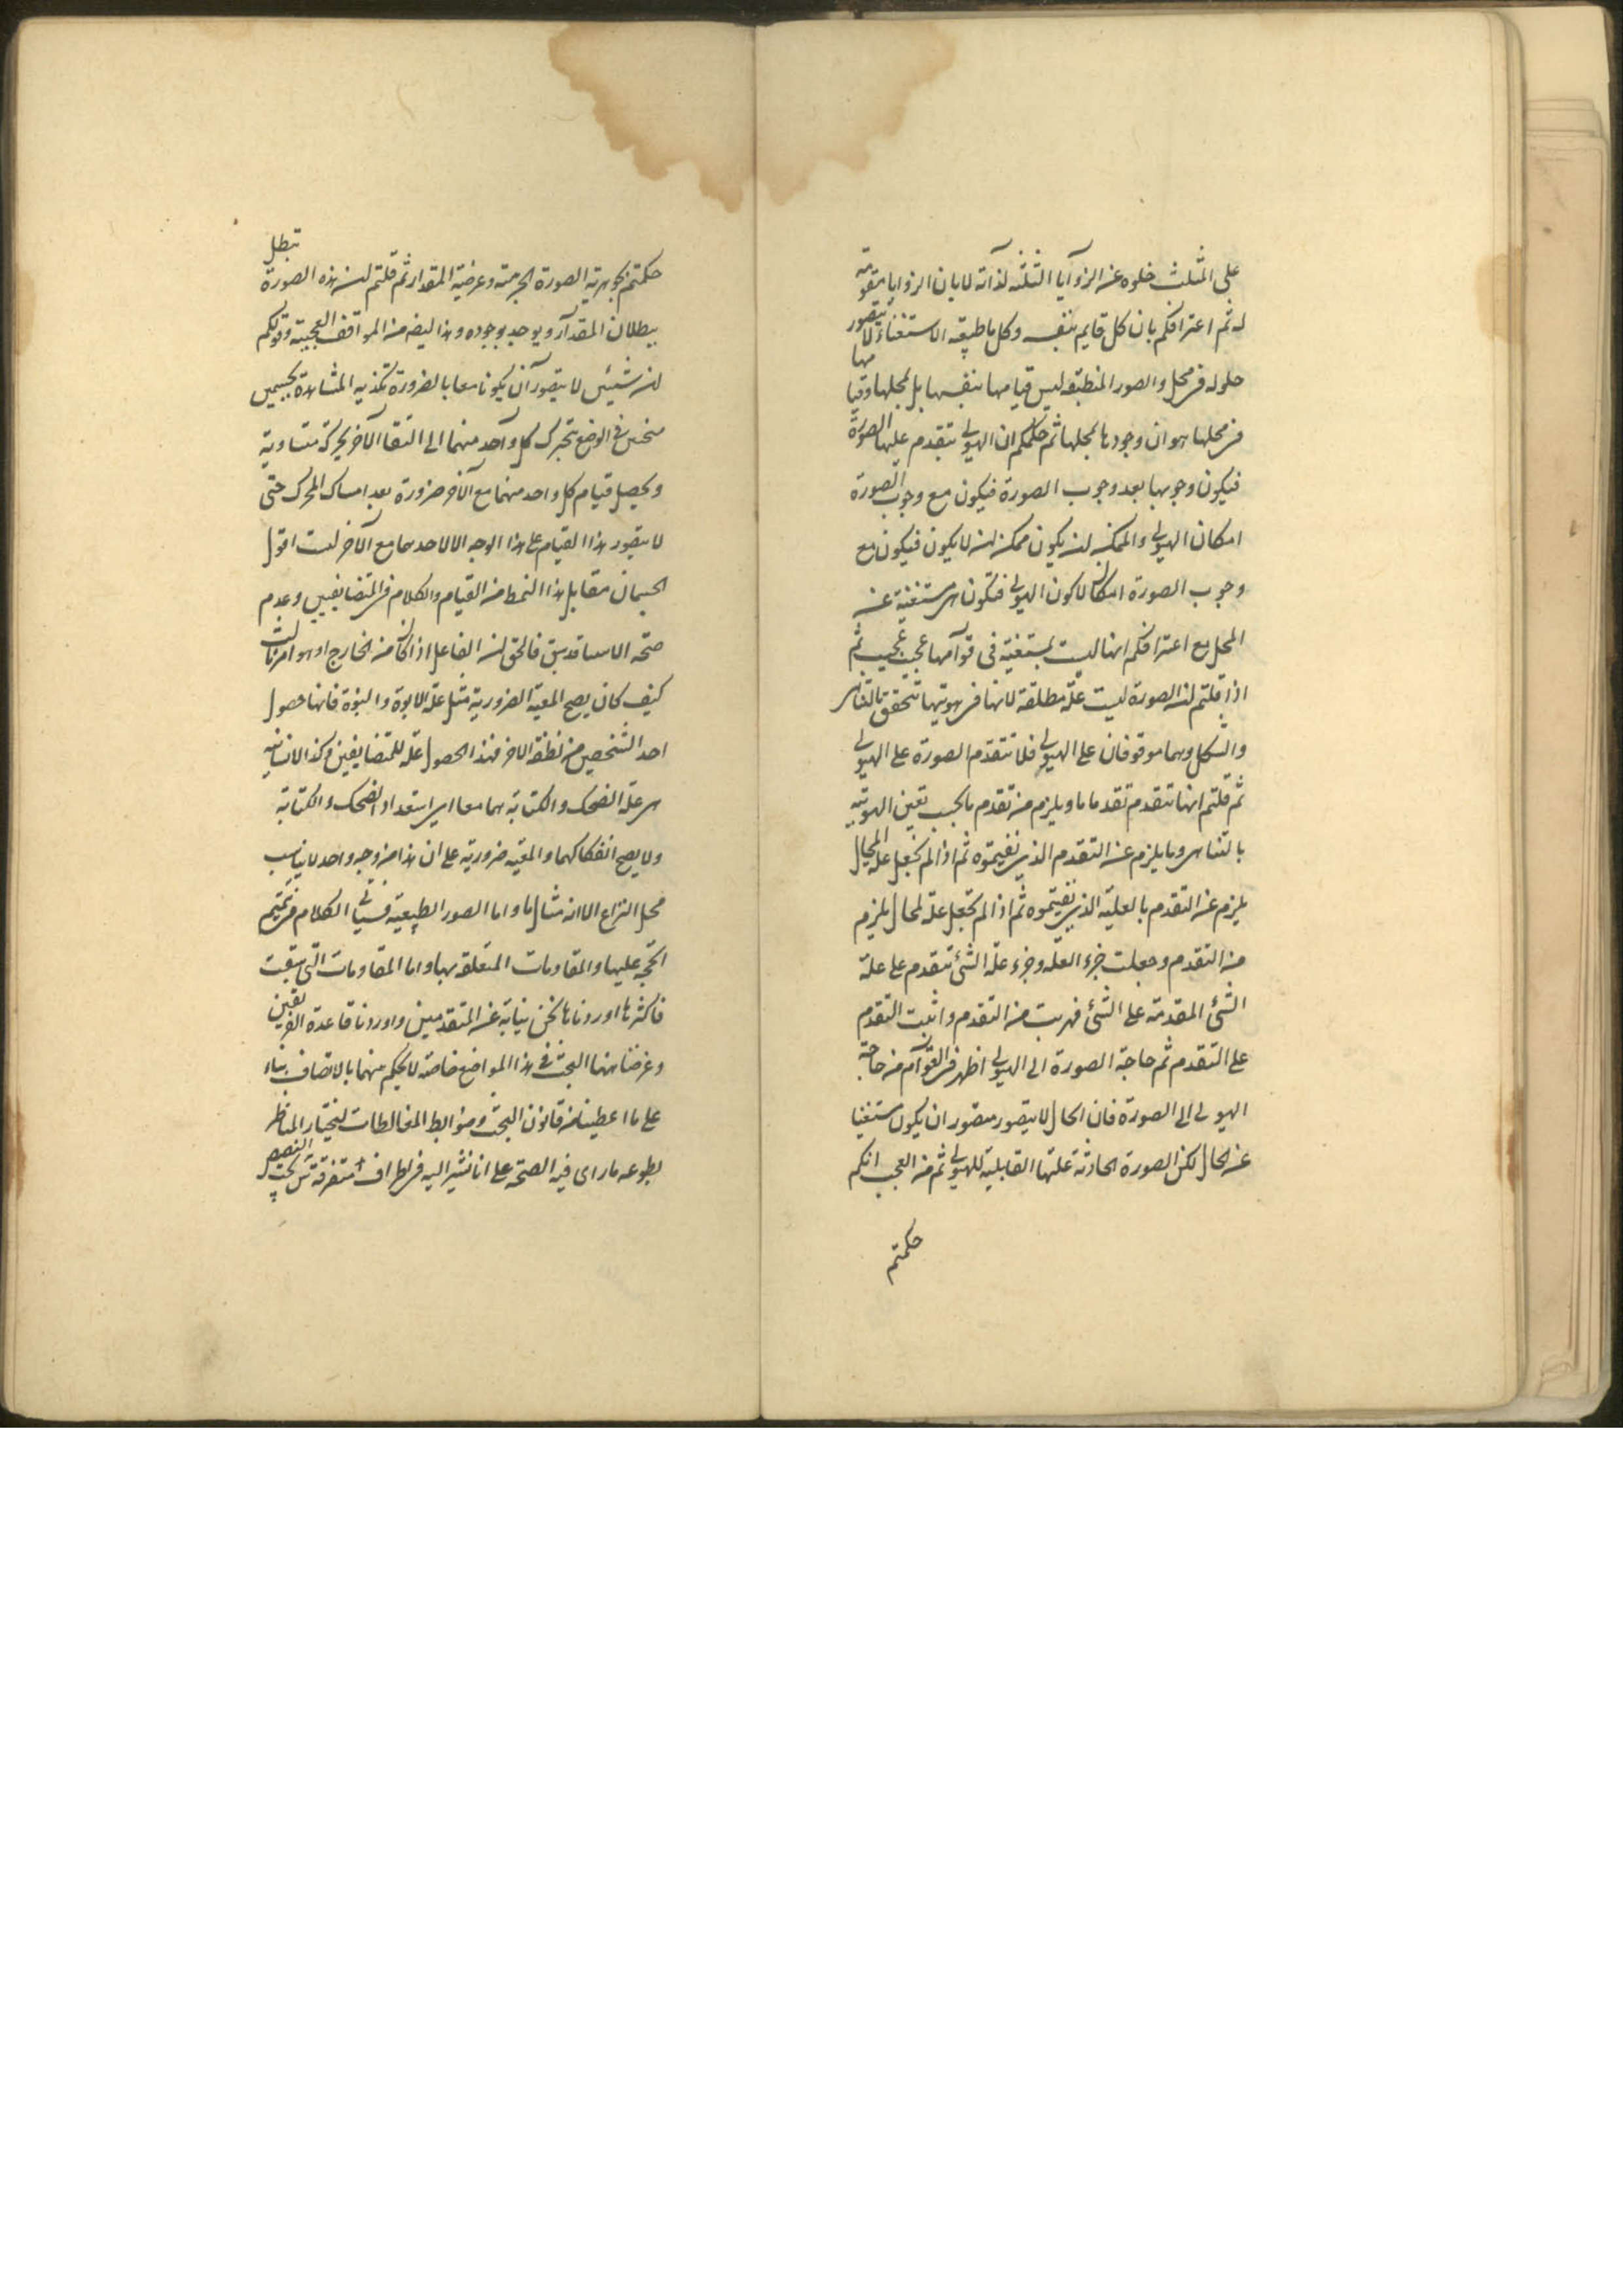 على المثلث خلوه عن الزوايا الثلثة لذاته لا بان الزوايا مقومة
له ثم اعترافكم بان كل قايم بنفسه وكل ما طبيعته الاستغناء لا يتصور
حلوله في محل والصور المنطبعة ليس قيامها بنفسها بل لمحلها وقيامها
في محلها هو ان وجودها لمحلها ثم حكمكم ان الهيولى تتقدم عليها الصورة
فيكون وجوبها بعد وجوب الصورة فيكون مع وجوب الصورة
امكان الهيولى والممكن ان يكون ممكن ان لا يكون فيكون مع
وجوب الصورة امكان لا كون الهيولى فتكون هي مستغنية عن
المحل مع اعترافكم انها ليست بمستغنية في قوامها عجب عجيب ثم
اذا قلتم ان الصورة ليست علة مطلقة لانها في هويتها تتحقق بالتناهي
والشكل وهما موقوفان على الهيولى فلا تتقدم الصورة على الهيولى
ثم قلتم انها تتقدم تقدما ما ويلزم من تقدم ما يجب تعين الهوية
بالتناهي وما يلزم عن التقدم الذي نفيتموه ثم اذا لم نجعل علة المحال
يلزم عن التقدم بالعلية الذي نفيتموه ثم اذا لم تجعل علة لمحال يلزم
من التقدم وجعلت جزء العلة وجزء علة الشئ تتقدم على علة
الشئ المقدمة على الشئ فهربت من التقدم واثبت التقدم
على التقدم ثم حاجة الصورة الى الهيولى اظهر في القوام من حاجة
الهيولى الى الصورة فان الحال لا يتصور متصور ان يكون مستغنيا
عن الحال لكن الصورة الحادثة علتها القابلية للهيولى ثم من العجب انكم
حكمتم
حكمتم بجوهرية الصورة الجرمية وعرضية المقدار ثم قلتم ان هذه الصورة تبطل
ببطلان المقدار ويوجد بوجوده وهذا ايضا من المواقف العجيبة وقولكم
ان شيئين لا يتصور ان يكونا معا بالضرورة تكذبه المشاهدة بجسمين
منحنيين في الوضع يتحرك كل واحد منهما الى التقاء الآخر بحركة متساوية
ويحصل قيام كل واحد منهما مع الآخر ضرورة بعد امساك المحرك حتى
لا يتصور هذا القيام على هذا الوجه الا لاحدهما مع الآخر لست اقول
الجسمان مقابل هذا النمط من القيام والكلام في المتضايفين وعدم
صحة الامساك قد سبق فالحق ان الفاعل اذا كان من الخارج او هو امر ثالث
كيف كان يصح المعية الضرورية مثل علة الابوة والبنوة فانها حصول
احد الشخصين من نطفة الاخر فهذا الحصول علة للمتضايفين وكذا الانسانية
هي علة الضحك والكتابة هما معا اي استعداد الضحك والكتابة
ولا يصح انفكاكهما والمعية ضرورية على ان هذا من وجه واحد لا يناسب
محل النزاع الا انه مثال ما واما الصور الطبيعية فسياتي الكلام في تتميم
الحجة عليها والمقاومات المتعلقة بها واما المقاومات التي سبقت
فاكثرها اوردناها نحن نيابة عن المتقدمين واوردنا قاعدة الفريقين
وغرضنا ههنا البحث في هذا المواضع خاصة لا لحكم منهما بالانصاف بناء
على ما اعطينا من قانون البحث وضوابط المغالطات ليختار الناظر
بطوعه ما راى فيه الصحة على انا نشير اليه في اطراف متفرقة